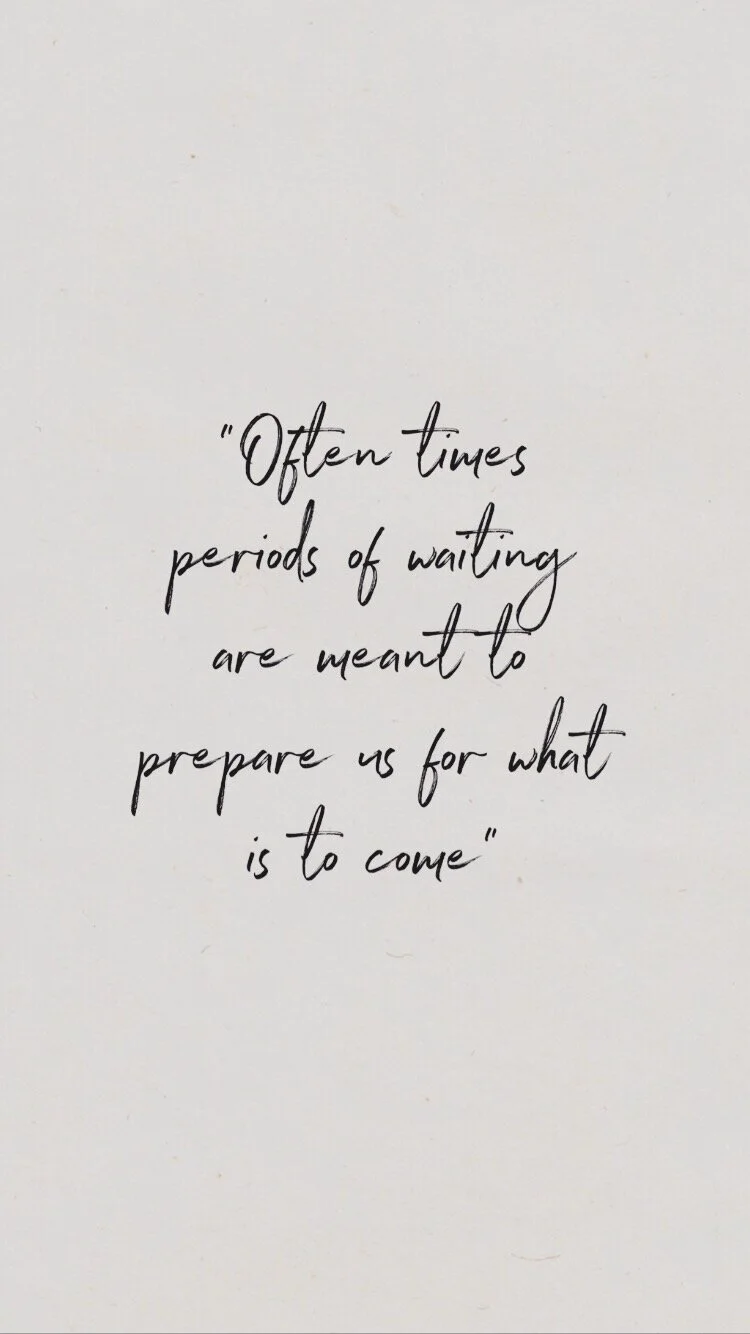 "Often times
periods of waiting
are meant to
prepare us for what
is to come"